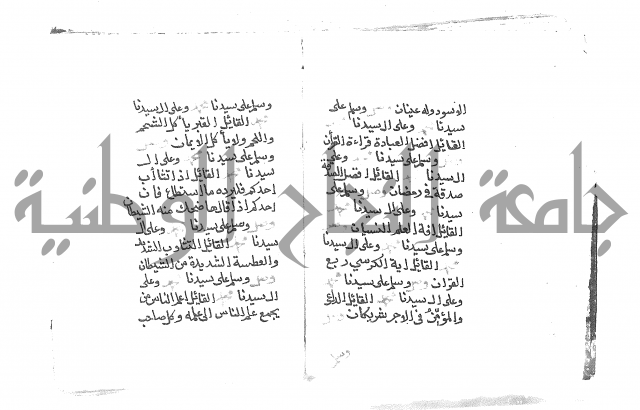 الاسود وله عينان وسلم على
سيدنا وعلى ال سيدنا
القائل افضل العبادة قراءة القرأن
وسلم على سيدنا وعلى
ال سيدنا القائل افضل الصدقة
صدقة في رمضان وسلم على
سيدنا وعلى ال سيدنا
القائل افة العلم النسيان
وسلم على سيدنا وعلى ال سيدنا
القائل اية الكرسي ربع
القران وسلم على سيدنا
وعلى ال سيدنا القائل الداعي
والمؤمن في الاجر شريكان
وسلم
وسلم على سيدنا وعلى ال سيدنا
القائل القبر يأكل الشحم
واللحم ولا يأكل الايمان
وسلم على سيدنا وعلى ال
سيدنا القائل اذا تثائب
احدكم فليرده ما استطاع فان
احدكم اذا قال ها ضحك منه الشيطان
وسلم على سيدنا وعلى ال
سيدنا القائل التثاوب الشديد
والعطسة الشديدة من الشيطان
وسلم على سيدنا وعلى
ال سيدنا القائل اعلم الناس من
يجمع علم الناس الى علمه وكل صاحب
جامعة النجاح الوطنية